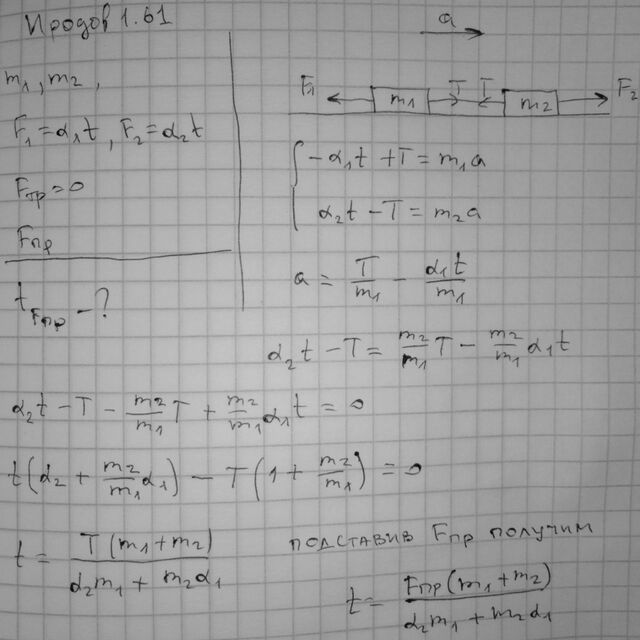 Иродов 1.61
m₁, m₂,
F₁ = α₁t, F₂ = α₂t
Fтр = 0
Fпр
t Fпр - ?
a
F₁ m₁ T T m₂ F₂
-α₁t + T = m₁a
α₂t - T = m₂a
a = T/m₁ - α₁t/m₁
α₂t - T = m₂/m₁ T - m₂/m₁ α₁t
α₂t - T - m₂/m₁ T + m₂/m₁ α₁t = 0
t(α₂ + m₂/m₁ α₁) - T(1 + m₂/m₁) = 0
t = T(m₁ + m₂)/(α₂m₁ + m₂α₁)
подставив Fпр получим
t = Fпр(m₁ + m₂)/(α₂m₁ + m₂α₁)